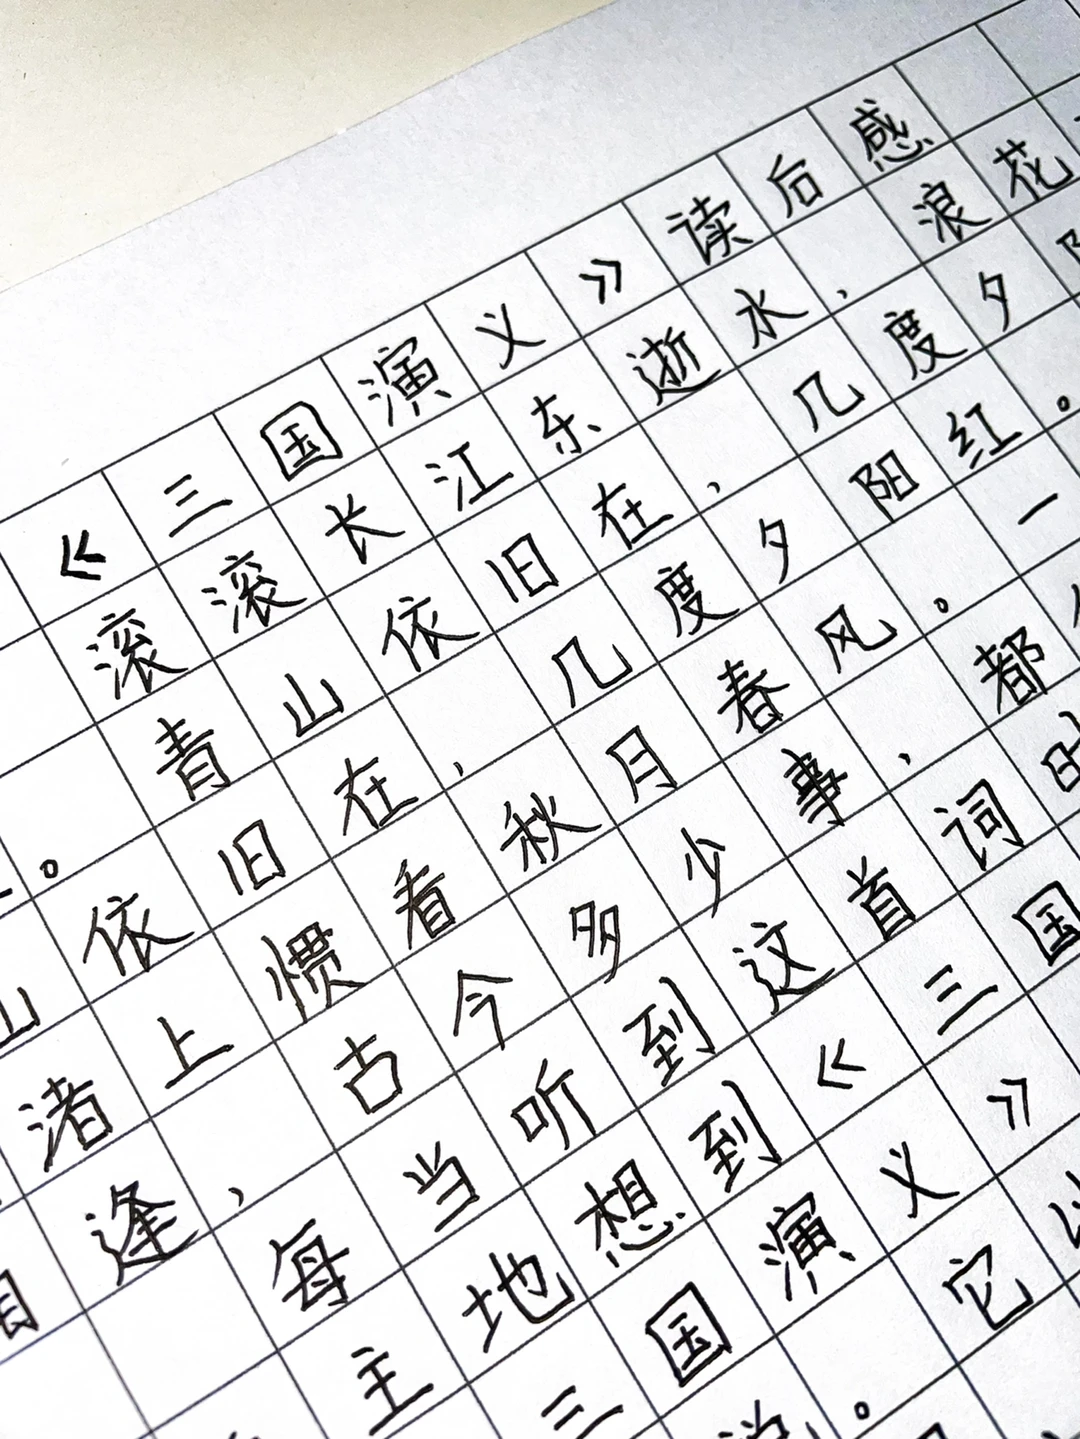 《三国演义》读后感
滚滚长江东逝水,浪花
。青山依旧在,几度夕
山依旧在,几度夕阳红。
渚上惯看秋月春风。一
相逢,古今多少事,都
每当听到这首词时
主地想到《三国
三国演义》
。它